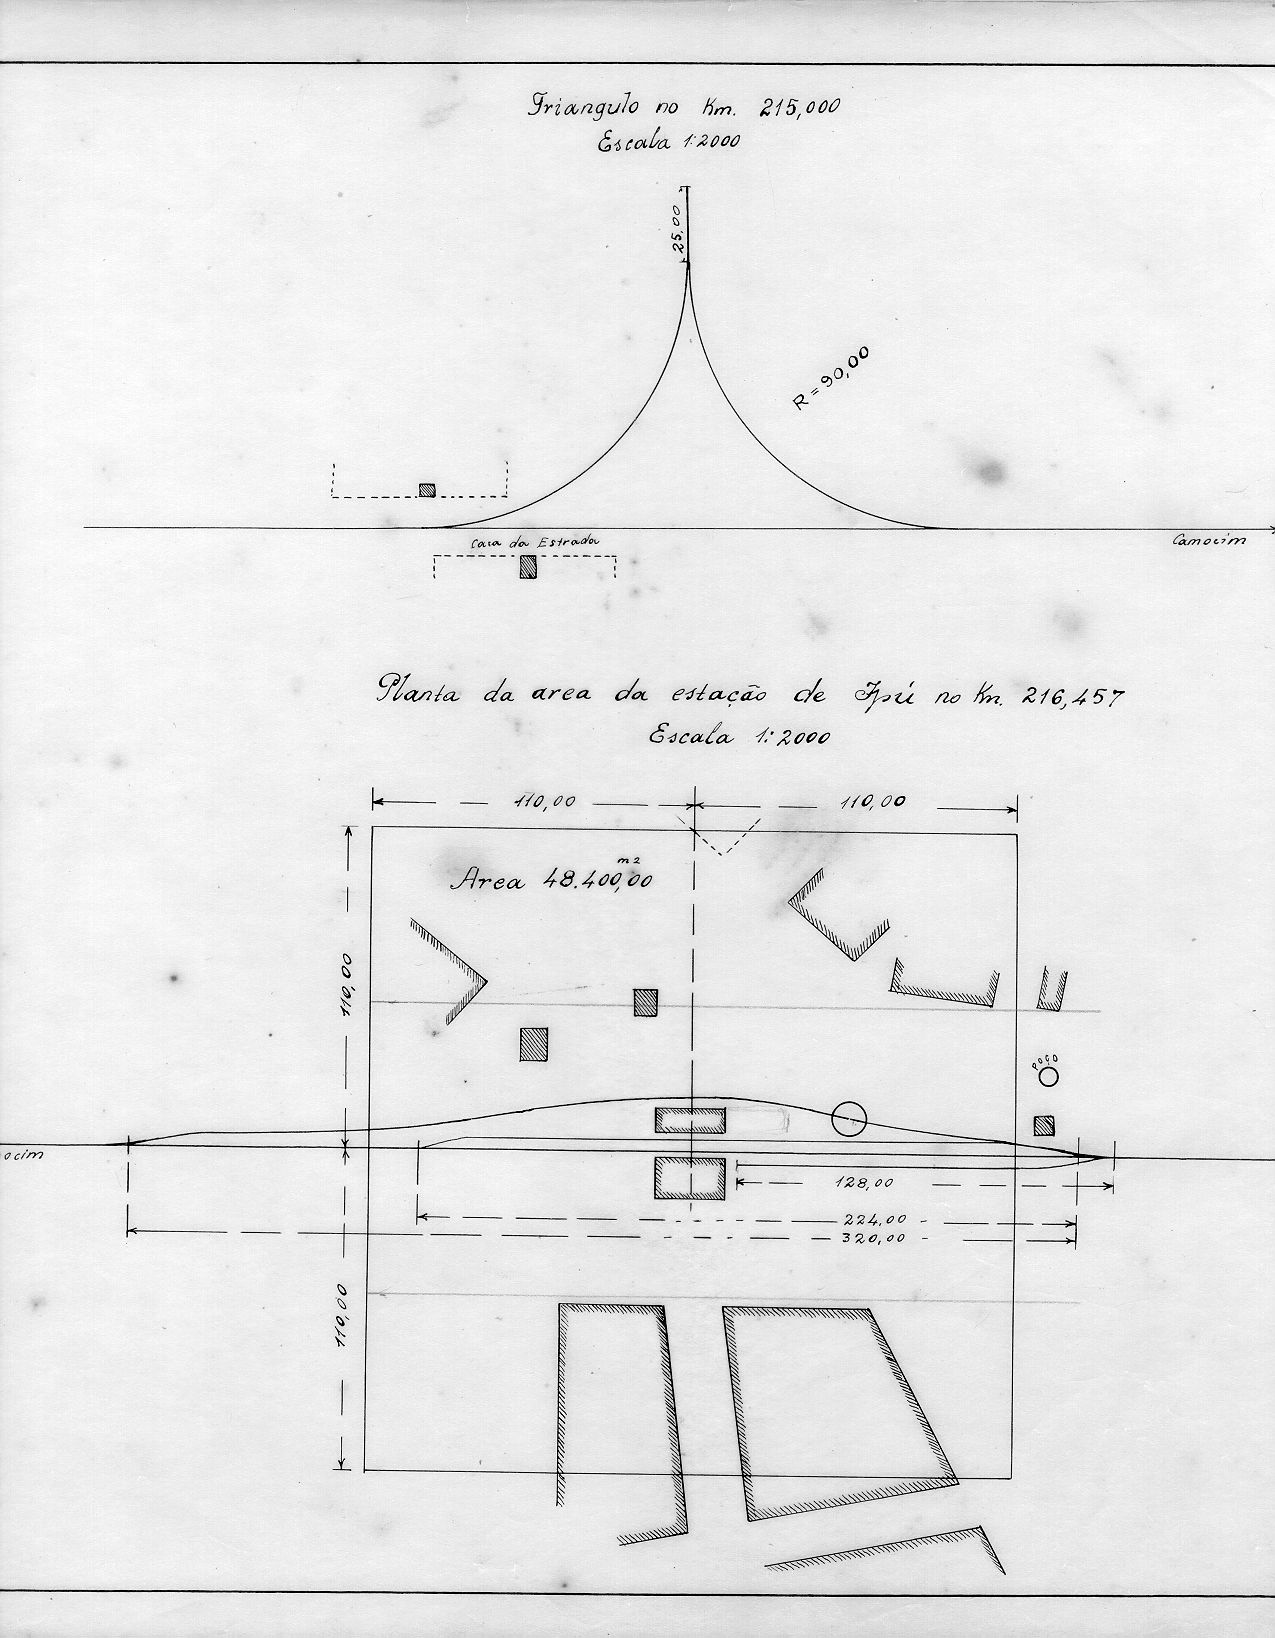 Triangulo no Km. 215,000
Escala 1:2000
25,00
R=90,00
Casa da Estrada
Camocim
Planta da area da estação de Ipú no Km. 216,457
Escala 1:2000
110,00
110,00
Area 48.400,00 m2
110,00
Poço
ocim
128,00
224,00
320,00
110,00